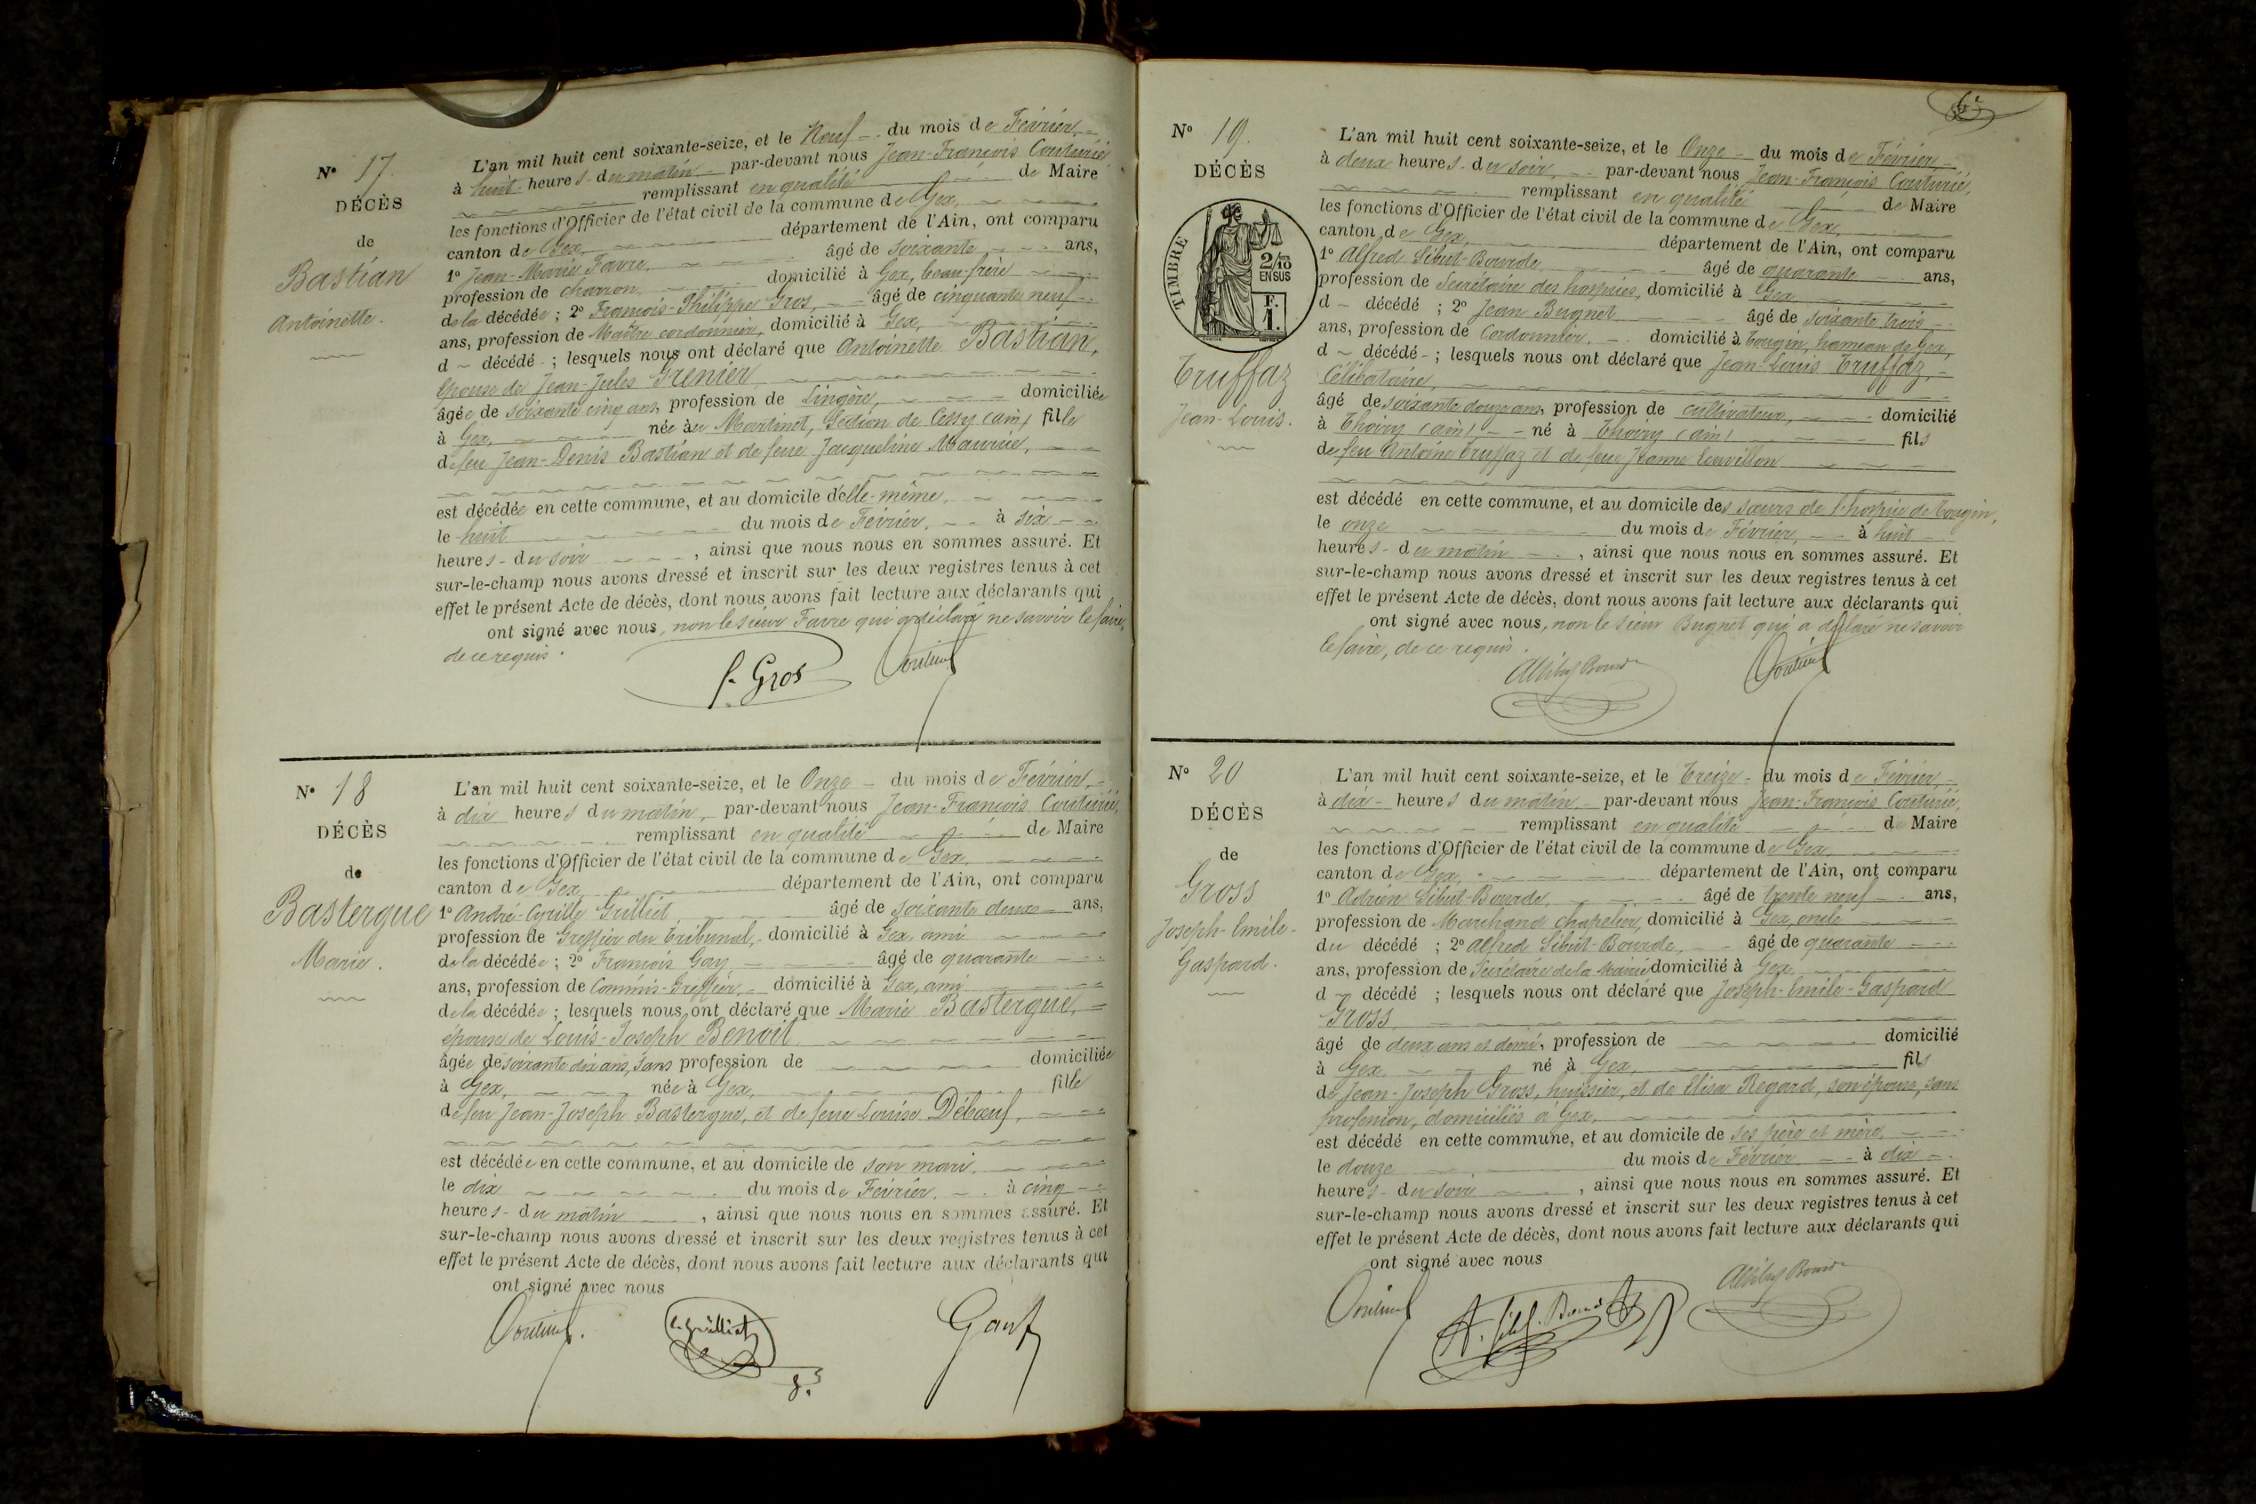 N° 17.
DÉCÈS
de
Bastian
Antoinette.
L'an mil huit cent soixante-seize, et le Neuf du mois de Février
à huit heures du matin par-devant nous Jean-François Couturié
remplissant en qualité de Maire
les fonctions d'Officier de l'état civil de la commune de Gex,
canton de Gex, département de l'Ain, ont comparu
1° Jean-Marie Favre, âgé de soixante ans,
profession de charron domicilié à Gex, beau-frère
de la décédée ; 2° François-Philippe Gros, âgé de cinquante neuf
ans, profession de Maître cordonnier, domicilié à Gex,
d décédé ; lesquels nous ont déclaré que Antoinette Bastian,
épouse de Jean-Jules Grenier
âgée de soixante cinq ans, profession de Lingère, domiciliée
à Gex, née au Martinet, Section de Cessy (ain) fille
de feu Jean-Denis Bastian et de feue Jacqueline Maurie,
est décédée en cette commune, et au domicile d'elle-même,
le huit du mois de Février, à six
heures du soir , ainsi que nous nous en sommes assuré. Et
sur-le-champ nous avons dressé et inscrit sur les deux registres tenus à cet
effet le présent Acte de décès, dont nous avons fait lecture aux déclarants qui
ont signé avec nous, non le sieur Favre qui a déclaré ne savoir le faire,
de ce requis.
f. Gros Couturié
N° 18
DÉCÈS
de
Bastergue
Marie.
L'an mil huit cent soixante-seize, et le Onze du mois de Février,
à dix heures du matin, par-devant nous Jean-François Couturié,
remplissant en qualité de Maire
les fonctions d'Officier de l'état civil de la commune de Gex,
canton de Gex, département de l'Ain, ont comparu
1° André-Cyrille Grilliet âgé de soixante deux ans,
profession de Greffier du Tribunal, domicilié à Gex, ami
de la décédée ; 2° François Gay âgé de quarante
ans, profession de Commis-Greffier, domicilié à Gex, ami
de la décédée ; lesquels nous ont déclaré que Marie Bastergue,
épouse de Louis-Joseph Benoit
âgée de soixante dix ans, sans profession de domiciliée
à Gex, née à Gex, fille
de feu Jean-Joseph Bastergue, et de feue Louise Débœuf,
est décédée en cette commune, et au domicile de son mari,
le dix du mois de Février, à cinq
heures du matin , ainsi que nous nous en sommes assuré. Et
sur-le-champ nous avons dressé et inscrit sur les deux registres tenus à cet
effet le présent Acte de décès, dont nous avons fait lecture aux déclarants qui
ont signé avec nous
Couturié. C. Grilliet Gay f
N° 19.
DÉCÈS
TIMBRE
2/10
EN SUS
F.
1.
Truffaz
Jean-Louis.
L'an mil huit cent soixante-seize, et le Onze du mois de Février
à deux heures du soir, par-devant nous Jean-François Couturié,
remplissant en qualité de Maire
les fonctions d'Officier de l'état civil de la commune de Gex,
canton de Gex, département de l'Ain, ont comparu
1° Alfred Sibut-Bourde âgé de quarante ans,
profession de Secrétaire des hospices, domicilié à Gex
d décédé ; 2° Jean Bugnet âgé de soixante trois
ans, profession de Cordonnier, domicilié à Tougin, hameau de Gex,
d décédé ; lesquels nous ont déclaré que Jean-Louis Truffaz,
Célibataire,
âgé de soixante douze ans, profession de cultivateur, domicilié
à Thoiry (ain) né à Thoiry (ain) fils
de feu Antoine Truffaz et de feue Jeanne
est décédé en cette commune, et au domicile des sœurs de l'hospice de Tougin,
le onze du mois de Février, à huit
heures du matin , ainsi que nous nous en sommes assuré. Et
sur-le-champ nous avons dressé et inscrit sur les deux registres tenus à cet
effet le présent Acte de décès, dont nous avons fait lecture aux déclarants qui
ont signé avec nous, non le sieur Bugnet qui a déclaré ne savoir
le faire, de ce requis.
ASibut Bourde Couturié
N° 20
DÉCÈS
de
Gross
Joseph-Emile-
Gaspard.
L'an mil huit cent soixante-seize, et le Treize du mois de Février,
à dix heures du matin par-devant nous Jean-François Couturié,
remplissant en qualité de Maire
les fonctions d'Officier de l'état civil de la commune de Gex
canton de Gex, département de l'Ain, ont comparu
1° Adrien Sibut-Bourde, âgé de trente neuf ans,
profession de Marchand chapelier, domicilié à Gex, oncle
du décédé ; 2° Alfred Sibut-Bourde, âgé de quarante
ans, profession de Secrétaire de la Mairie domicilié à Gex,
d décédé ; lesquels nous ont déclaré que Joseph-Emile-Gaspard
Gross
âgé de deux ans et demi, profession de domicilié
à Gex né à Gex, fils
de Jean-Joseph Gross, huissier, et de Elisa Regard, son épouse, sans
profession, domiciliés à Gex,
est décédé en cette commune, et au domicile de ses père et mère,
le douze du mois de Février à dix
heures du soir , ainsi que nous nous en sommes assuré. Et
sur-le-champ nous avons dressé et inscrit sur les deux registres tenus à cet
effet le présent Acte de décès, dont nous avons fait lecture aux déclarants qui
ont signé avec nous
Couturié A. Sibut. Bourde ASibut Bourde